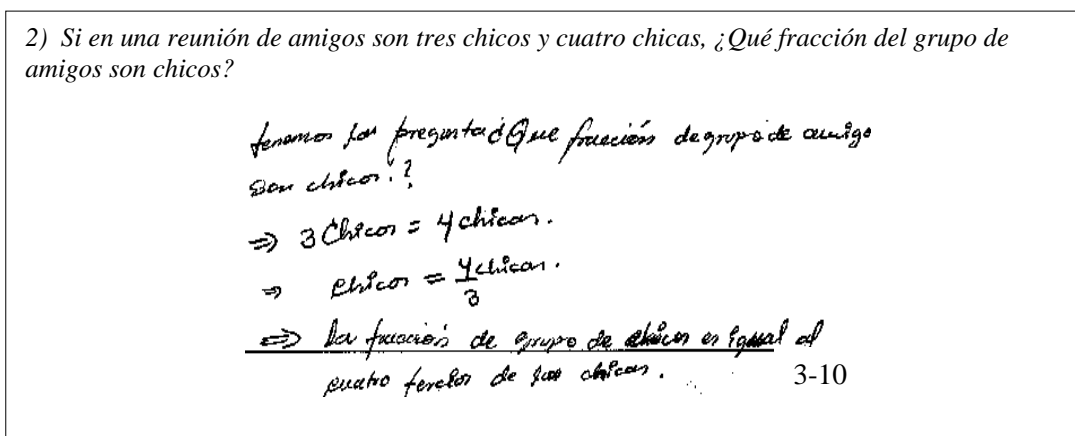 2) Si en una reunión de amigos son tres chicos y cuatro chicas, ¿Qué fracción del grupo de
amigos son chicos?
tenemos la pregunta ¿Que fracción de grupo de amigo
son chicos.?
⇒ 3 Chicos = 4 chicas.
⇒ chicos = 4 chicas. / 3
⇒ la fracción de grupo de chicos es igual al
cuatro tercios de las chicas.
3-10